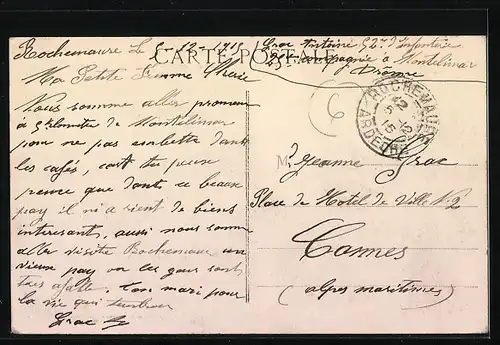 Rochemaure le 5-12-1915
CARTE POSTALE
Grac Antoine 52me d'infanterie
25me Compagnie à Montelimar
Drome
Ma Petite Femme Cherie
Nous somme aller promener
à 5 kilometre de Montelimar
pour ne pas ambetté dant
les cafés, cart tu peuse
pence que dant ce beaux
pay il ni a rient de biens
interesants, aussi nous somme
aller visitre Rochemaure un
vieux pay ou les gens sont
tres afable. Ton mari pour
la vie qui t'embrase
Grac A
6
ROCHEMAURE
ARDECHE
M Jeanne Grac
Place de Hotel de Ville N 2
Cannes
(alpes maritimes)